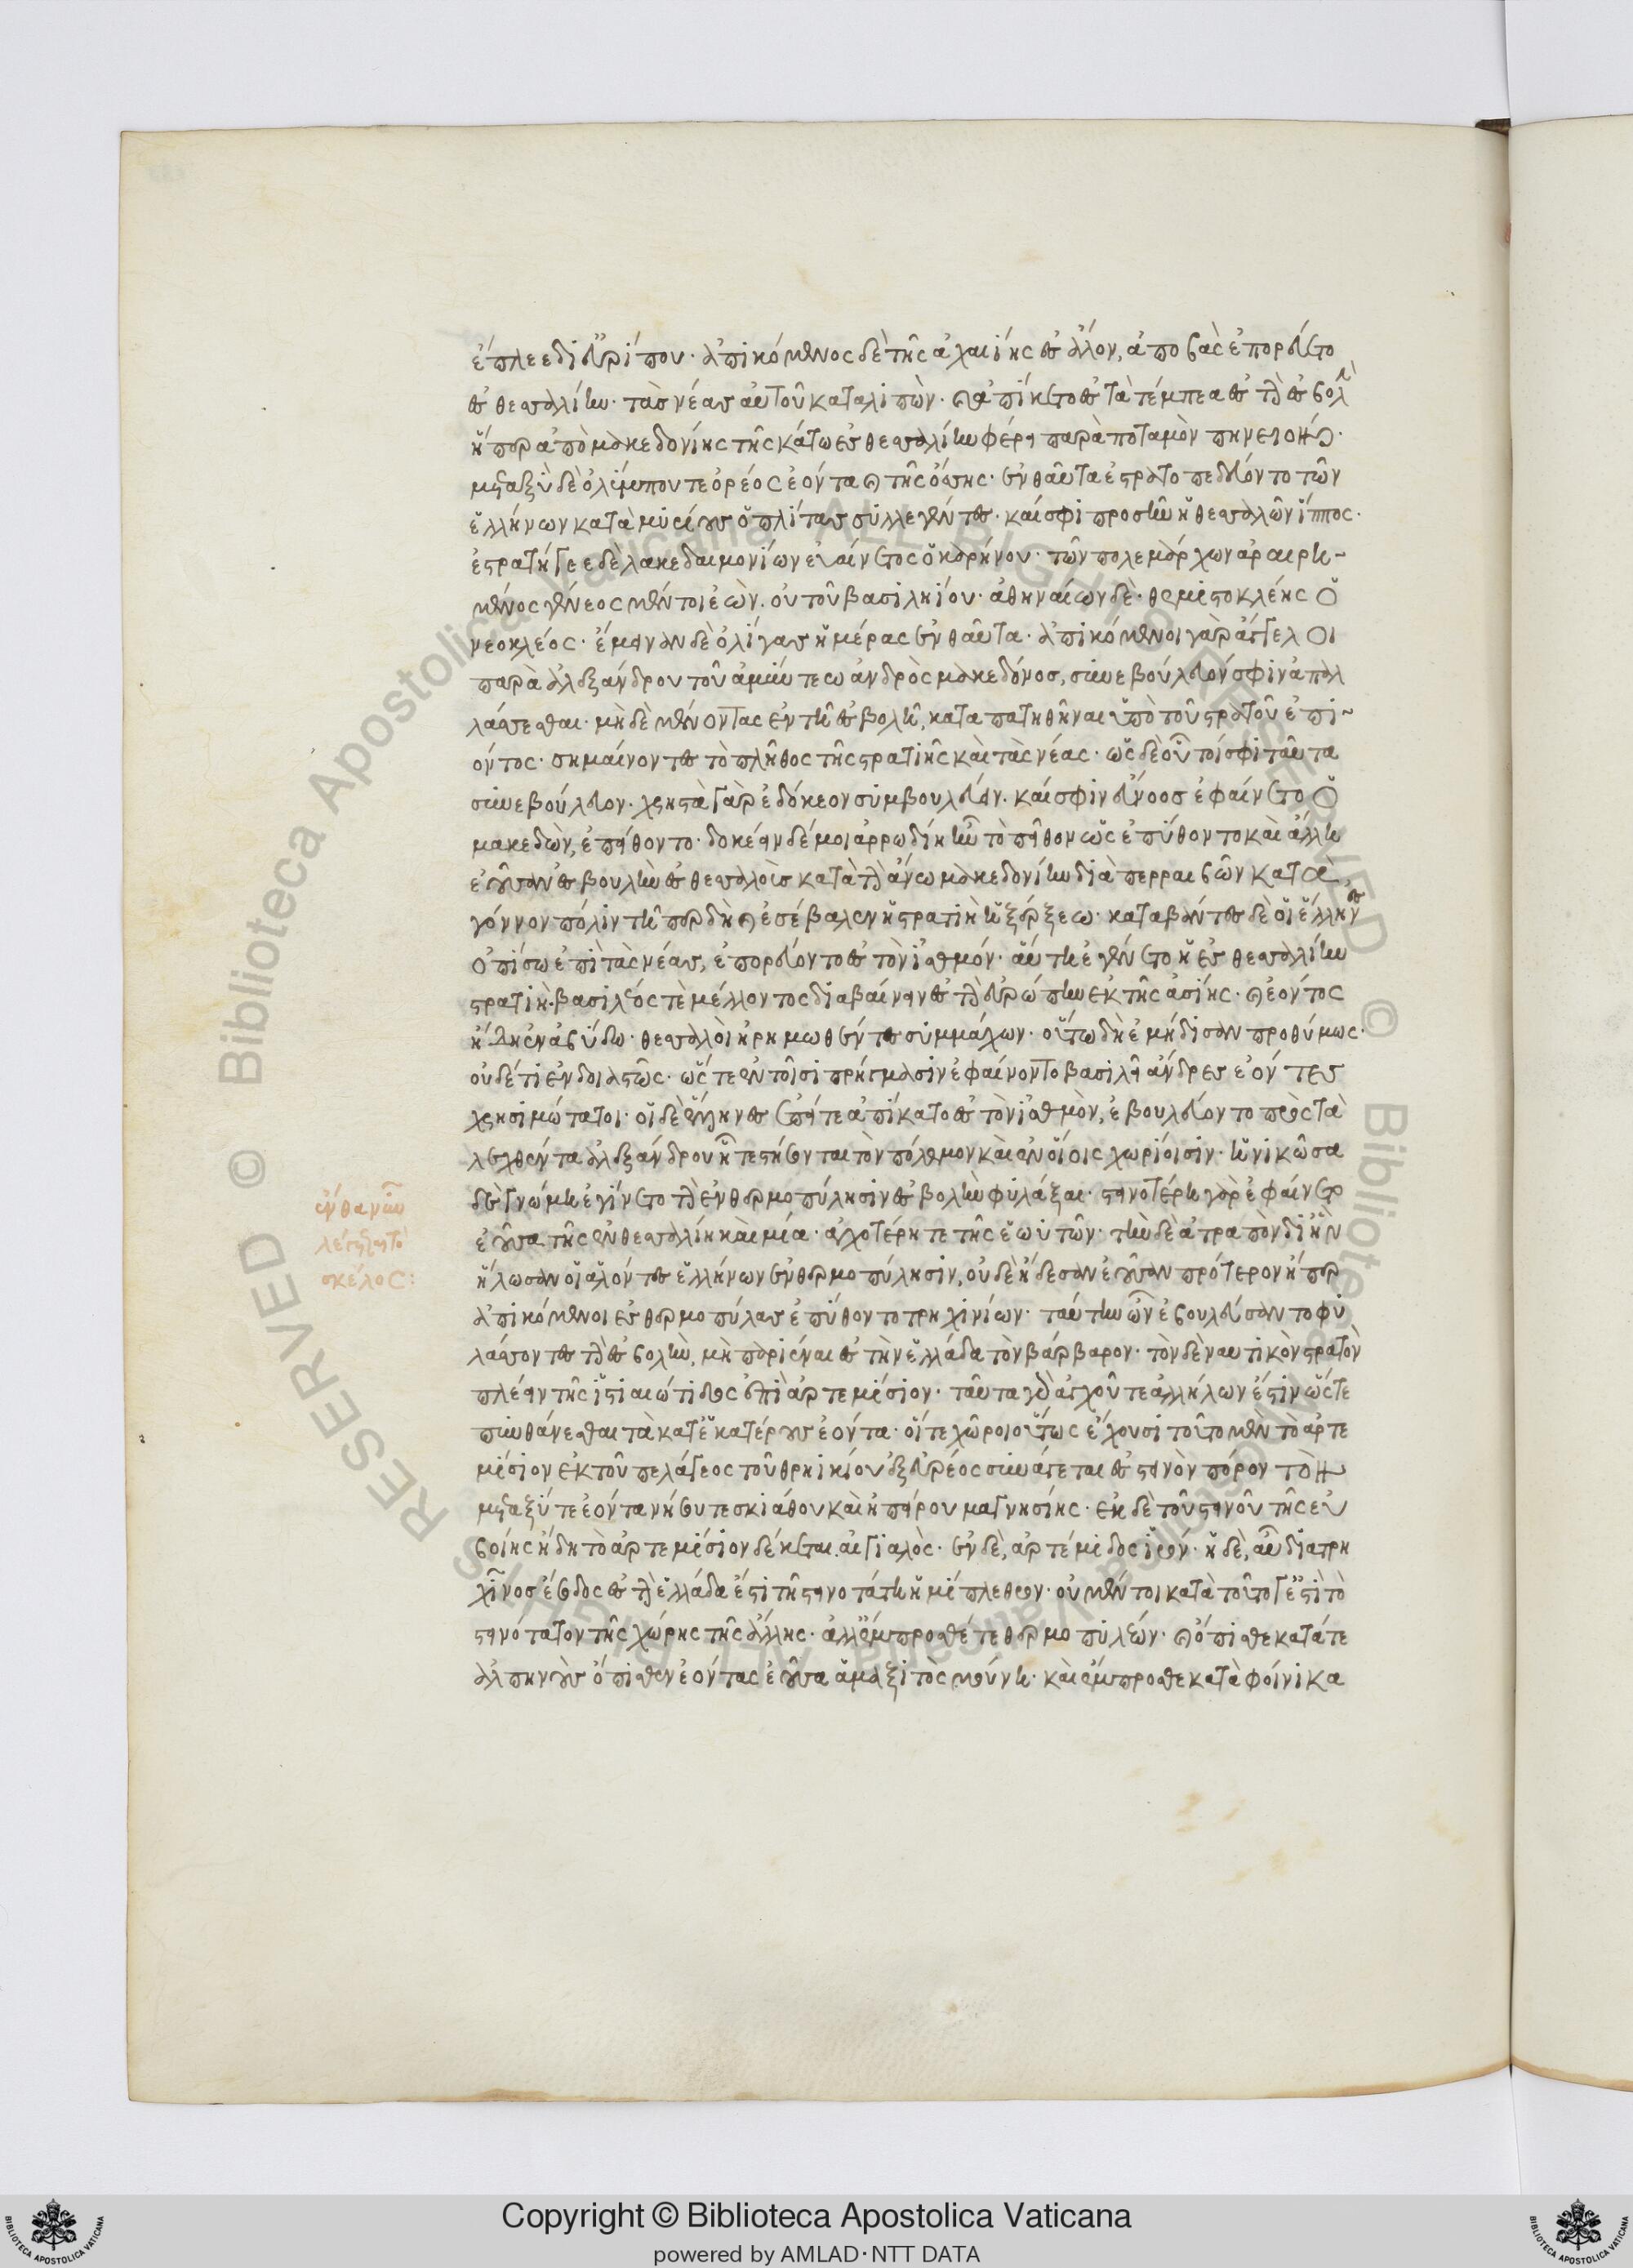 ἔπλεε δι' εὐρίπου· ἀπικόμενος δὲ τῆς ἀχαιίης ἐς ἄλον, ἀποβὰς ἐπορεύετο
ἐς θεσσαλίην· τὰς νέας αὐτοῦ καταλιπών· καὶ ἀπίκετο ἐς τὰ τέμπεα ἐς τὴν ἐσβολὴν
ἥπερ ἀπὸ μακεδονίης τῆς κάτω ἐς θεσσαλίην φέρει παρὰ ποταμὸν πηνειὸν·
μεταξὺ δὲ ὀλύμπου τε ὄρεος ἐόντα καὶ τῆς ὄσσης· ἐνθαῦτα ἐστρατοπεδεύοντο τῶν
ἑλλήνων κατὰ μυρίους ὁπλίτας συλλεγέντες· καί σφι προσῆν ἡ θεσσαλῶν ἵππος·
ἐστρατήγεε δὲ λακεδαιμονίων εὐαίνετος ὁ καρήνου· τῶν πολεμάρχων ἀραιρη-
μένος γένεος μέντοι ἐὼν. οὐ τοῦ βασιληίου· ἀθηναίων δὲ· θεμιστοκλέης ὁ
νεοκλέος· ἔμειναν δὲ ὀλίγας ἡμέρας ἐνθαῦτα· ἀπικόμενοι γὰρ ἄγγελοι
παρὰ ἀλεξάνδρου τοῦ ἀμύντεω ἀνδρὸς μακεδόνος, συνεβούλευόν σφιν ἀπαλ
λάσσεσθαι· μηδὲ μένοντας ἐν τῇ ἐσβολῇ, καταπατηθῆναι ὑπὸ τοῦ στρατοῦ ἐπι-
όντος· σημαίνοντες τὸ πλῆθος τῆς στρατιῆς καὶ τὰς νέας· ὡς δὲ οὗτοί σφι ταῦτα
συνεβούλευον· χρηστὰ γὰρ ἐδόκεον συμβουλεύειν· καί σφιν εὔνοος ἐφαίνετο ὁ
μακεδὼν, ἐπείθοντο· δοκέειν δέ μοι ἀρρωδίη ἦν τὸ πεῖθον ὡς ἐπύθοντο καὶ ἄλλην
ἐοῦσαν ἐσβολὴν ἐς θεσσαλοὺς κατὰ τὴν ἄνω μακεδονίην διὰ περραιβῶν κατὰ
γόννον πόλιν τῇπερ δὴ καὶ ἐσέβαλεν ἡ στρατιὴ ἡ ξέρξεω· καταβάντες δὲ οἱ ἕλληνες
ὀπίσω ἐπὶ τὰς νέας, ἐπορεύοντο ἐς τὸν ἰσθμόν· αὕτη ἐγένετο ἡ ἐς θεσσαλίην
στρατιὴ· βασιλέος τὲ μέλλοντος διαβαίνειν ἐς τὴν εὐρώπην ἐκ τῆς ἀσίης· καὶ ἐόντος
ἤδη ἐν ἀβύδω· θεσσαλοὶ ἐρημωθέντες συμμάχων· οὕτω δὴ ἐμήδισαν προθύμως·
οὐδέτι ἐνδοιαστῶς· ὥστε ἐν τοῖσι πρήγμασιν ἐφαίνοντο βασιλῆ ἄνδρες ἐόντες
χρησιμώτατοι· οἱ δὲ ἕλληνες ἐπείτε ἀπίκατο ἐς τὸν ἰσθμὸν, ἐβουλεύοντο πρὸς τὰ
λεχθέντα ἀλεξάνδρου ἧ τε στήσονται τὸν πόλεμον καὶ ἐν οἵοις χωρίοισιν· ἡ νικῶσα
δὲ γνώμη ἐγίνετο τὴν ἐν θερμοπύλησιν ἐσβολὴν φυλάξαι· στεινοτέρη γὰρ ἐφαίνετο
ἐοῦσα τῆς ἐν θεσσαλίη καὶ μία· ἀγχοτέρη τε τῆς ἑωυτῶν· τὴν δὲ ἀτραπὸν δι' ἣν
ἥλωσαν οἱ ἁλόντες ἑλλήνων ἐν θερμοπύλησιν, οὐδὲ ᾔδεσαν ἐοῦσαν πρότερον ἤπερ
ἀπικόμενοι ἐς θερμοπύλας ἐπύθοντο τρηχινίων· ταύτην ὦν ἐβουλεύσαντο φυ
λάσσοντες τὴν ἐσβολὴν, μὴ παριέναι ἐς τὴν ἑλλάδα τὸν βάρβαρον· τὸν δὲ ναυτικὸν στρατὸν
πλέειν τῆς ἱστιαιώτιδος ἐπὶ ἀρτεμίσιον· ταῦτα γὰρ ἀγχοῦ τε ἀλλήλων ἐστὶν ὥστε
πυνθάνεσθαι τὰ κατὰ ἑκατέρους ἐόντα· οἵ τε χῶροι οὕτως ἔχουσι τοῦτο μὲν τὸ ἀρτε
μίσιον ἐκ τοῦ πελάγεος τοῦ θρηικίου ἐξ εὐρέος συνάγεται ἐς στεινὸν πόρον τὸν
μεταξύ τε ἐόντα νήσου τε σκιάθου καὶ ἠπείρου μαγνησίης· ἐκ δὲ τοῦ στεινοῦ τῆς εὐ
βοίης ἤδη τὸ ἀρτεμίσιον δέκεται. αἰγιαλὸς· ἐν δὲ, ἀρτέμιδος ἱρόν· ἡ δὲ, αὖ διὰ τρη
χῖνος ἔσοδος ἐς τὴν ἑλλάδα ἐστὶ τῇ στεινοτάτη ἡμίπλεθρον· οὐ μέντοι κατὰ τοῦτό γ' ἐστὶ τὸ
στεινότατον τῆς χώρης τῆς ἄλλης· ἀλλ' ἔμπροσθέ τε θερμοπυλέων· καὶ ὄπισθε κατά τε
ἀλπηνοὺς ὄπισθεν ἐόντας ἐοῦσα ἁμαξιτὸς μούνη· καὶ ἔμπροσθε κατὰ φοίνικα
σκέλος: